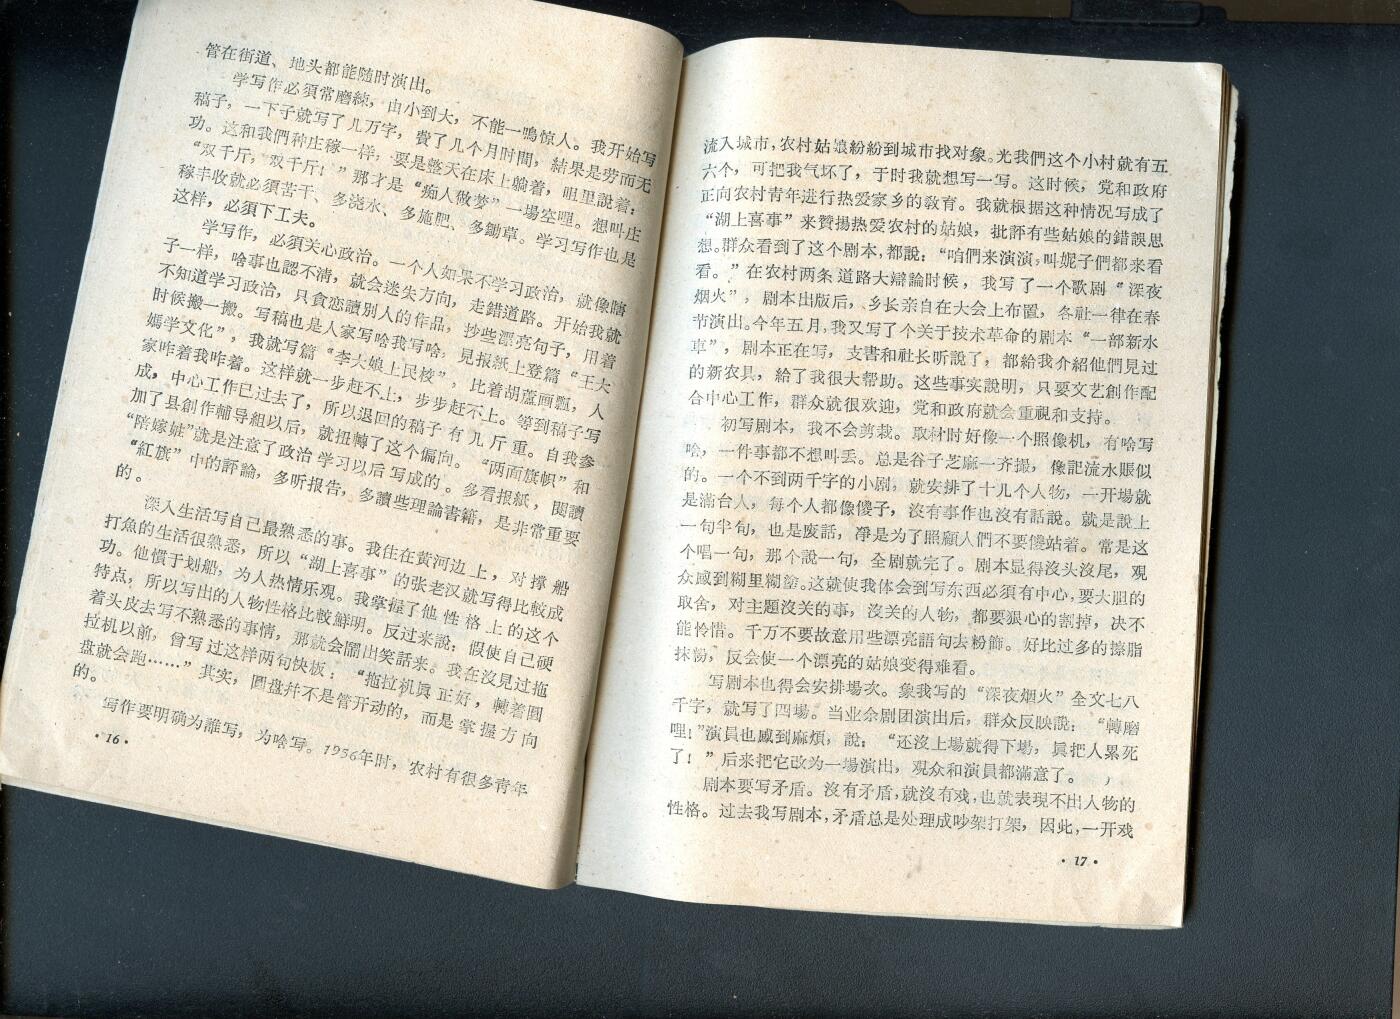 管在街道、地头都能随时演出。
学写作必須常磨練，由小到大，不能一鳴惊人。我开始写
稿子，一下子就写了几万字，費了几个月时間，結果是劳而无
功。这和我們种庄稼一样，要是整天在床上躺着，咀里說着：
“双千斤，双千斤！”那才是“痴人做梦”一場空哩。想叫庄
稼丰收就必須苦干、多浇水、多施肥、多鋤草。学习写作也是
这样，必須下工夫。
学写作，必須关心政治。一个人如果不学习政治，就像瞎
子一样，啥事也認不清，就会迷失方向，走錯道路。开始我就
不知道学习政治，只貪恋讀別人的作品，抄些漂亮句子，用着
时候搬一搬。写稿也是人家写啥我写啥，見报紙上登篇“王大
媽学文化”，我就写篇“李大娘上民校”，比着胡蘆画瓢，人
家咋着我咋着。这样就一步赶不上，步步赶不上。等到稿子写
成，中心工作已过去了，所以退回的稿子有几斤重。自我参
加了县創作輔导組以后，就扭轉了这个偏向。“两面旗帜”和
“陪嫁妝”就是注意了政治学习以后写成的。多看报紙，閱讀
“紅旗”中的評論，多听报告，多讀些理論書籍，是非常重要
的。
深入生活写自己最熟悉的事。我住在黃河边上，对撑船
打魚的生活很熟悉，所以“湖上喜事”的张老汉就写得比較成
功。他慣于划船，为人热情乐观。我掌握了他性格上的这个
特点，所以写出的人物性格比較鮮明。反过来說，假使自己硬
着头皮去写不熟悉的事情，那就会鬧出笑話来。我在沒見过拖
拉机以前，曾写过这样两句快板：“拖拉机眞正好，轉着圆
盘就会跑……”其实，圆盘并不是管开动的，而是掌握方向
的。
写作要明确为誰写，为啥写。1956年时，农村有很多青年
·16·
流入城市，农村姑娘紛紛到城市找对象。光我們这个小村就有五
六个，可把我气坏了，于时我就想写一写。这时候，党和政府
正向农村青年进行热爱家乡的敎育。我就根据这种情况写成了
“湖上喜事”来贊揚热爱农村的姑娘，批評有些姑娘的錯誤思
想。群众看到了这个剧本，都說：“咱們来演演，叫妮子們都来看
看。”在农村两条道路大辯論时候，我写了一个歌剧“深夜
烟火”，剧本出版后，乡长亲自在大会上布置，各社一律在春
节演出。今年五月，我又写了个关于技术革命的剧本“一部新水
車”，剧本正在写，支書和社长听說了，都給我介紹他們見过
的新农具，給了我很大帮助。这些事实說明，只要文艺創作配
合中心工作，群众就很欢迎，党和政府就会重視和支持。
初写剧本，我不会剪裁。取材时好像一个照像机，有啥写
啥，一件事都不想叫丢。总是谷子芝蔴一齐撮，像記流水賬似
的。一个不到两千字的小剧，就安排了十几个人物，一开場就
是滿台人，每个人都像傻子，沒有事作也沒有話說。就是說上
一句半句，也是废話，凈是为了照顧人們不要儍站着。常是这
个唱一句，那个說一句，全剧就完了。剧本显得沒头沒尾，观
众感到糊里糊塗。这就使我体会到写东西必須有中心，要大胆的
取舍，对主題沒关的事，沒关的人物，都要狠心的割掉，决不
能怜惜。千万不要故意用些漂亮語句去粉飾。好比过多的擦脂
抹粉，反会使一个漂亮的姑娘变得难看。
写剧本也得会安排場次。象我写的“深夜烟火”全文七八
千字，就写了四場。当业余剧团演出后，群众反映說：“轉磨
哩！”演員也感到麻煩，說：“还沒上場就得下場，眞把人累死
了！”后来把它改为一場演出，观众和演員都滿意了。
剧本要写矛盾。沒有矛盾，就沒有戏，也就表現不出人物的
性格。过去我写剧本，矛盾总是处理成吵架打架，因此，一开戏
·17·